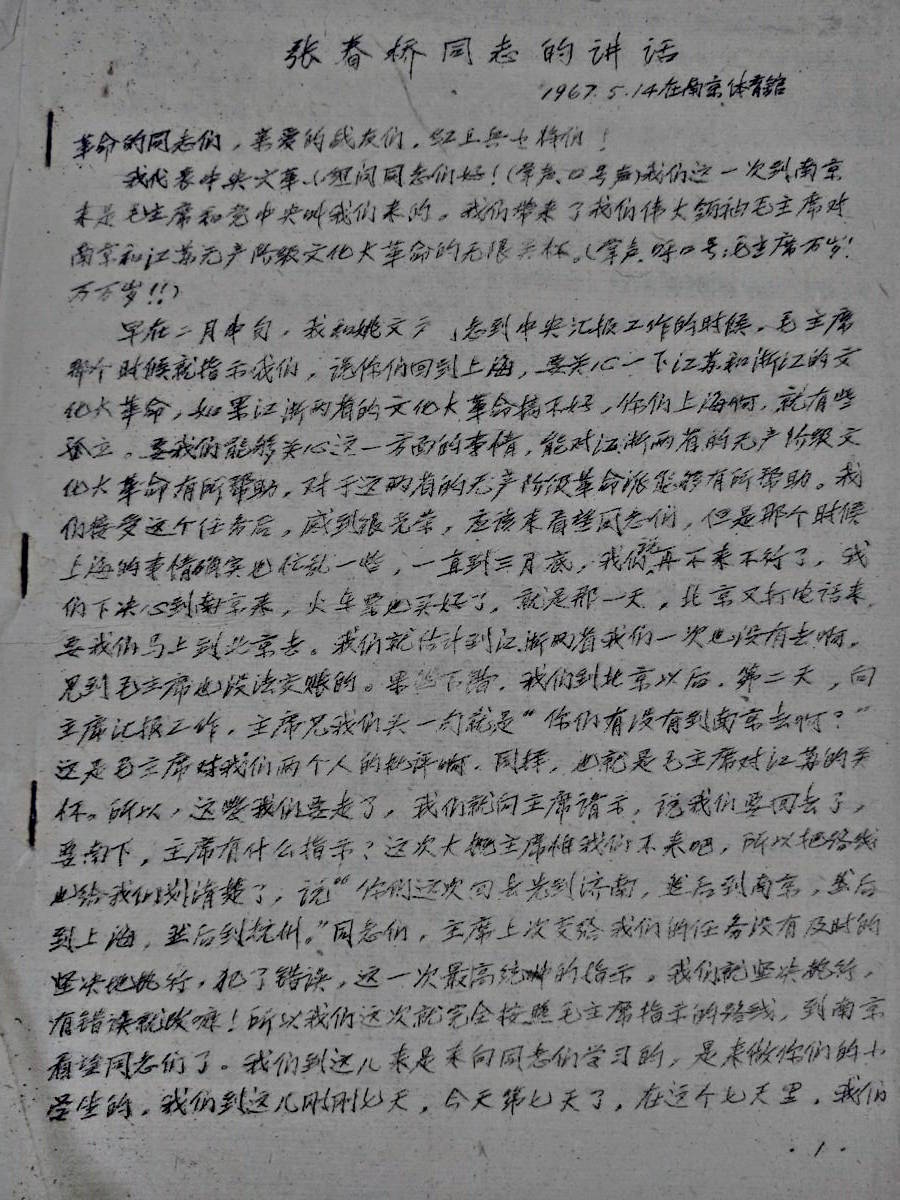 张春桥同志的讲话
1967.5.14在南京体育館
革命的同志们，亲爱的战友们，红卫兵小将们！
我代表中央文革小组问同志们好！（掌声、口号声）我们这一次到南京
来是毛主席和党中央叫我们来的。我们带来了我们伟大领袖毛主席对
南京和江苏无产阶级文化大革命的无限关怀。（掌声、呼口号：毛主席万岁！
万万岁！！）
早在二月中旬，我和姚文元同志到中央汇报工作的时候，毛主席
那个时候就指示我们，说你们回到上海，要关心一下江苏和浙江的文
化大革命，如果江浙两省的文化大革命搞不好，你们上海啊，就有些
孤立。要我们能够关心这一方面的事情，能对江浙两省的无产阶级文
化大革命有所帮助，对于这两省的无产阶级革命派能够有所帮助。我
们接受这个任务后，感到很光荣，应该来看望同志们，但是那个时候
上海的事情确实也忙乱一些，一直到三月底，我们说再不来不行了，我
们下决心到南京来，火车票也买好了，就是那一天，北京又打电话来，
要我们马上到北京去。我们就估计到江浙两省我们一次也没有去啊，
见到毛主席也没法交账的。果然不错，我们到北京以后，第二天，向
主席汇报工作，主席见我们头一句就是“你们有没有到南京去啊？”
这是毛主席对我们两个人的批评啊，同样，也就是毛主席对江苏的关
怀。所以，这些我们要走了，我们就向主席请示，说我们要回去了，
要南下，主席有什么指示？这次大概主席怕我们不来吧，所以把路线
也给我们划清楚了，说“你们这次回去先到济南，然后到南京，然后
到上海，然后到杭州。”同志们，主席上次交给我们的任务没有及时的
坚决地执行，犯了错误，这一次最高统帅的指示，我们就坚决执行，
有错误就改嘛！所以我们这次就完全按照毛主席指示的路线，到南京
看望同志们了。我们到这儿来是来向同志们学习的，是来做你们的小
学生的，我们到这儿刚刚七天，今天第七天了，在这个七天里，我们
·1·